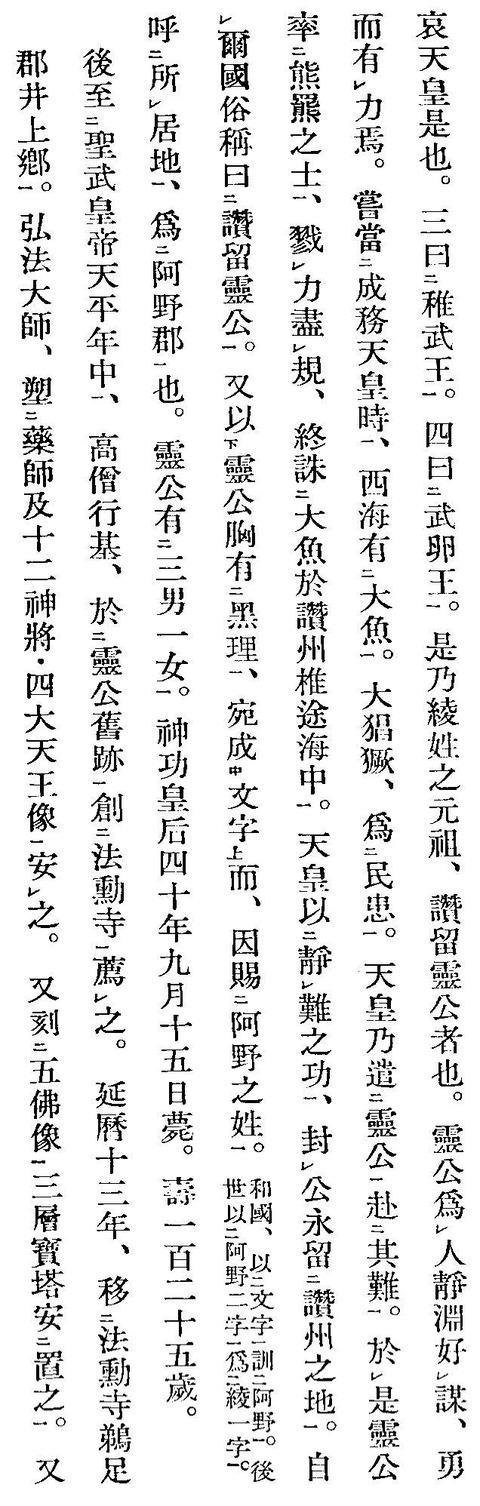 哀天皇是也。三曰㆓稚武王㆒。四曰㆓武卵王㆒。是乃綾姓之元祖、讚留靈公者也。靈公爲㆑人靜淵好㆑謀、勇
而有㆑力焉。嘗當㆓成務天皇時㆒、西海有㆓大魚㆒。大猖獗、爲㆓民患㆒。天皇乃遣㆓靈公㆒赴㆓其難㆒。於㆑是靈公
率㆓熊羆之士㆒、戮㆑力盡㆑規、終誅㆓大魚於讚州椎途海中㆒。天皇以㆓靜㆑難之功㆒、封㆑公永留㆓讚州之地㆒。自
㆑爾國俗稱曰㆓讚留靈公㆒。又以㆘靈公胸有㆓黑理㆒、宛成㆗文字㆖而、因賜㆓阿野之姓㆒。和國、以㆓文字㆒訓㆓阿野㆒。後世以㆓阿野二字㆒爲㆓綾一字㆒。
呼㆓所㆑居地㆒、爲㆓阿野郡㆒也。靈公有㆓三男一女㆒。神功皇后四十年九月十五日薨。壽一百二十五歲。
後至㆓聖武皇帝天平年中㆒、高僧行基、於㆓靈公舊跡㆒創㆓法勳寺㆒薦㆑之。延曆十三年、移㆓法勳寺鵜足
郡井上鄕㆒。弘法大師、塑㆓藥師及十二神將・四大天王像㆒安㆑之。又刻㆓五佛像㆒三層寶塔安㆓置之㆒。又